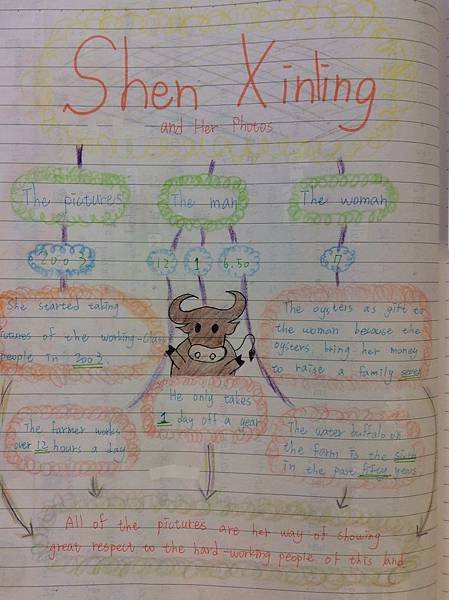 Shen Xinling
and Her Photos
The pictures
The man
The woman
2003
12
1
6.50
7
She started taking
pictures of the working-class
people in 2003.
The oysters as gift to
the woman because the
oysters bring her money
to raise a family seven
He only takes
1 day off a year
The farmer works
over 12 hours a day
The water buffalo on
the farm is the sixth
in the past fifty years
All of the pictures are her way of showing
great respect to the hard-working people of this land.